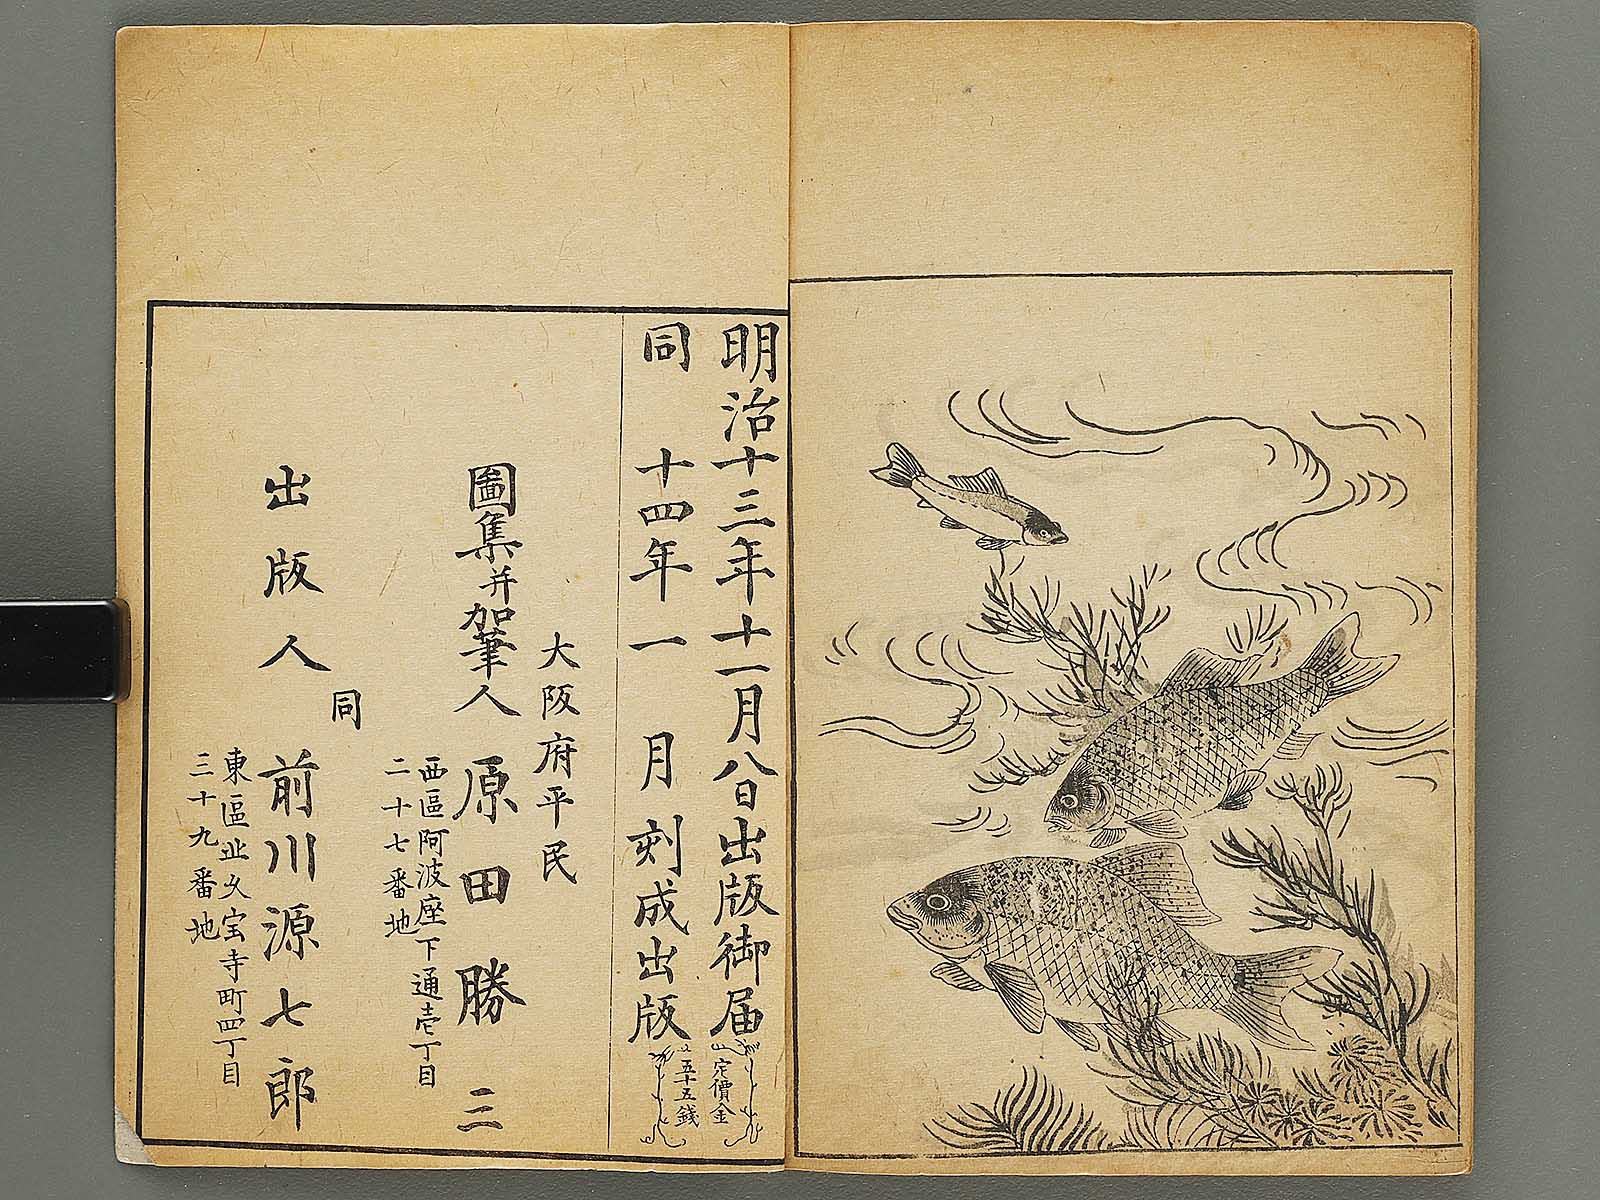 明治十三年十一月八日出版御届
同 十四年一 月刻成出版
定價金
五十五錢
大阪府平民
圖集并加筆人 原田勝三
西區阿波座下通壱丁目
二十七番地
同
出版人 前川源七郎
東區北久宝寺町四丁目
三十九番地